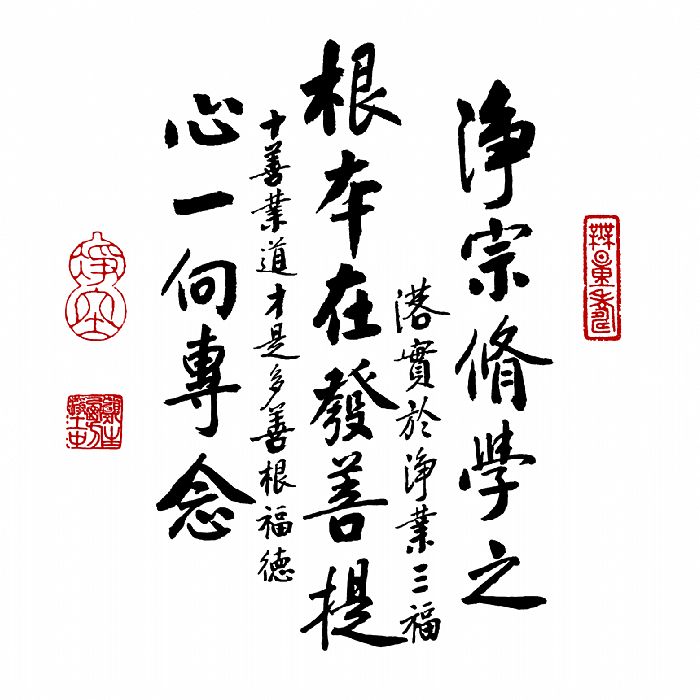 無量壽
淨宗脩學之
落實於淨業三福
根本在發菩提
十善業道才是多善根福德
心一向專念
淨空